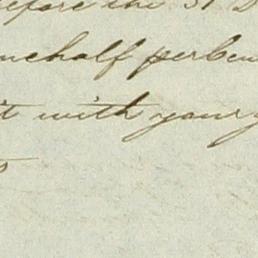 before the 31 D
onehalf percen
it with your